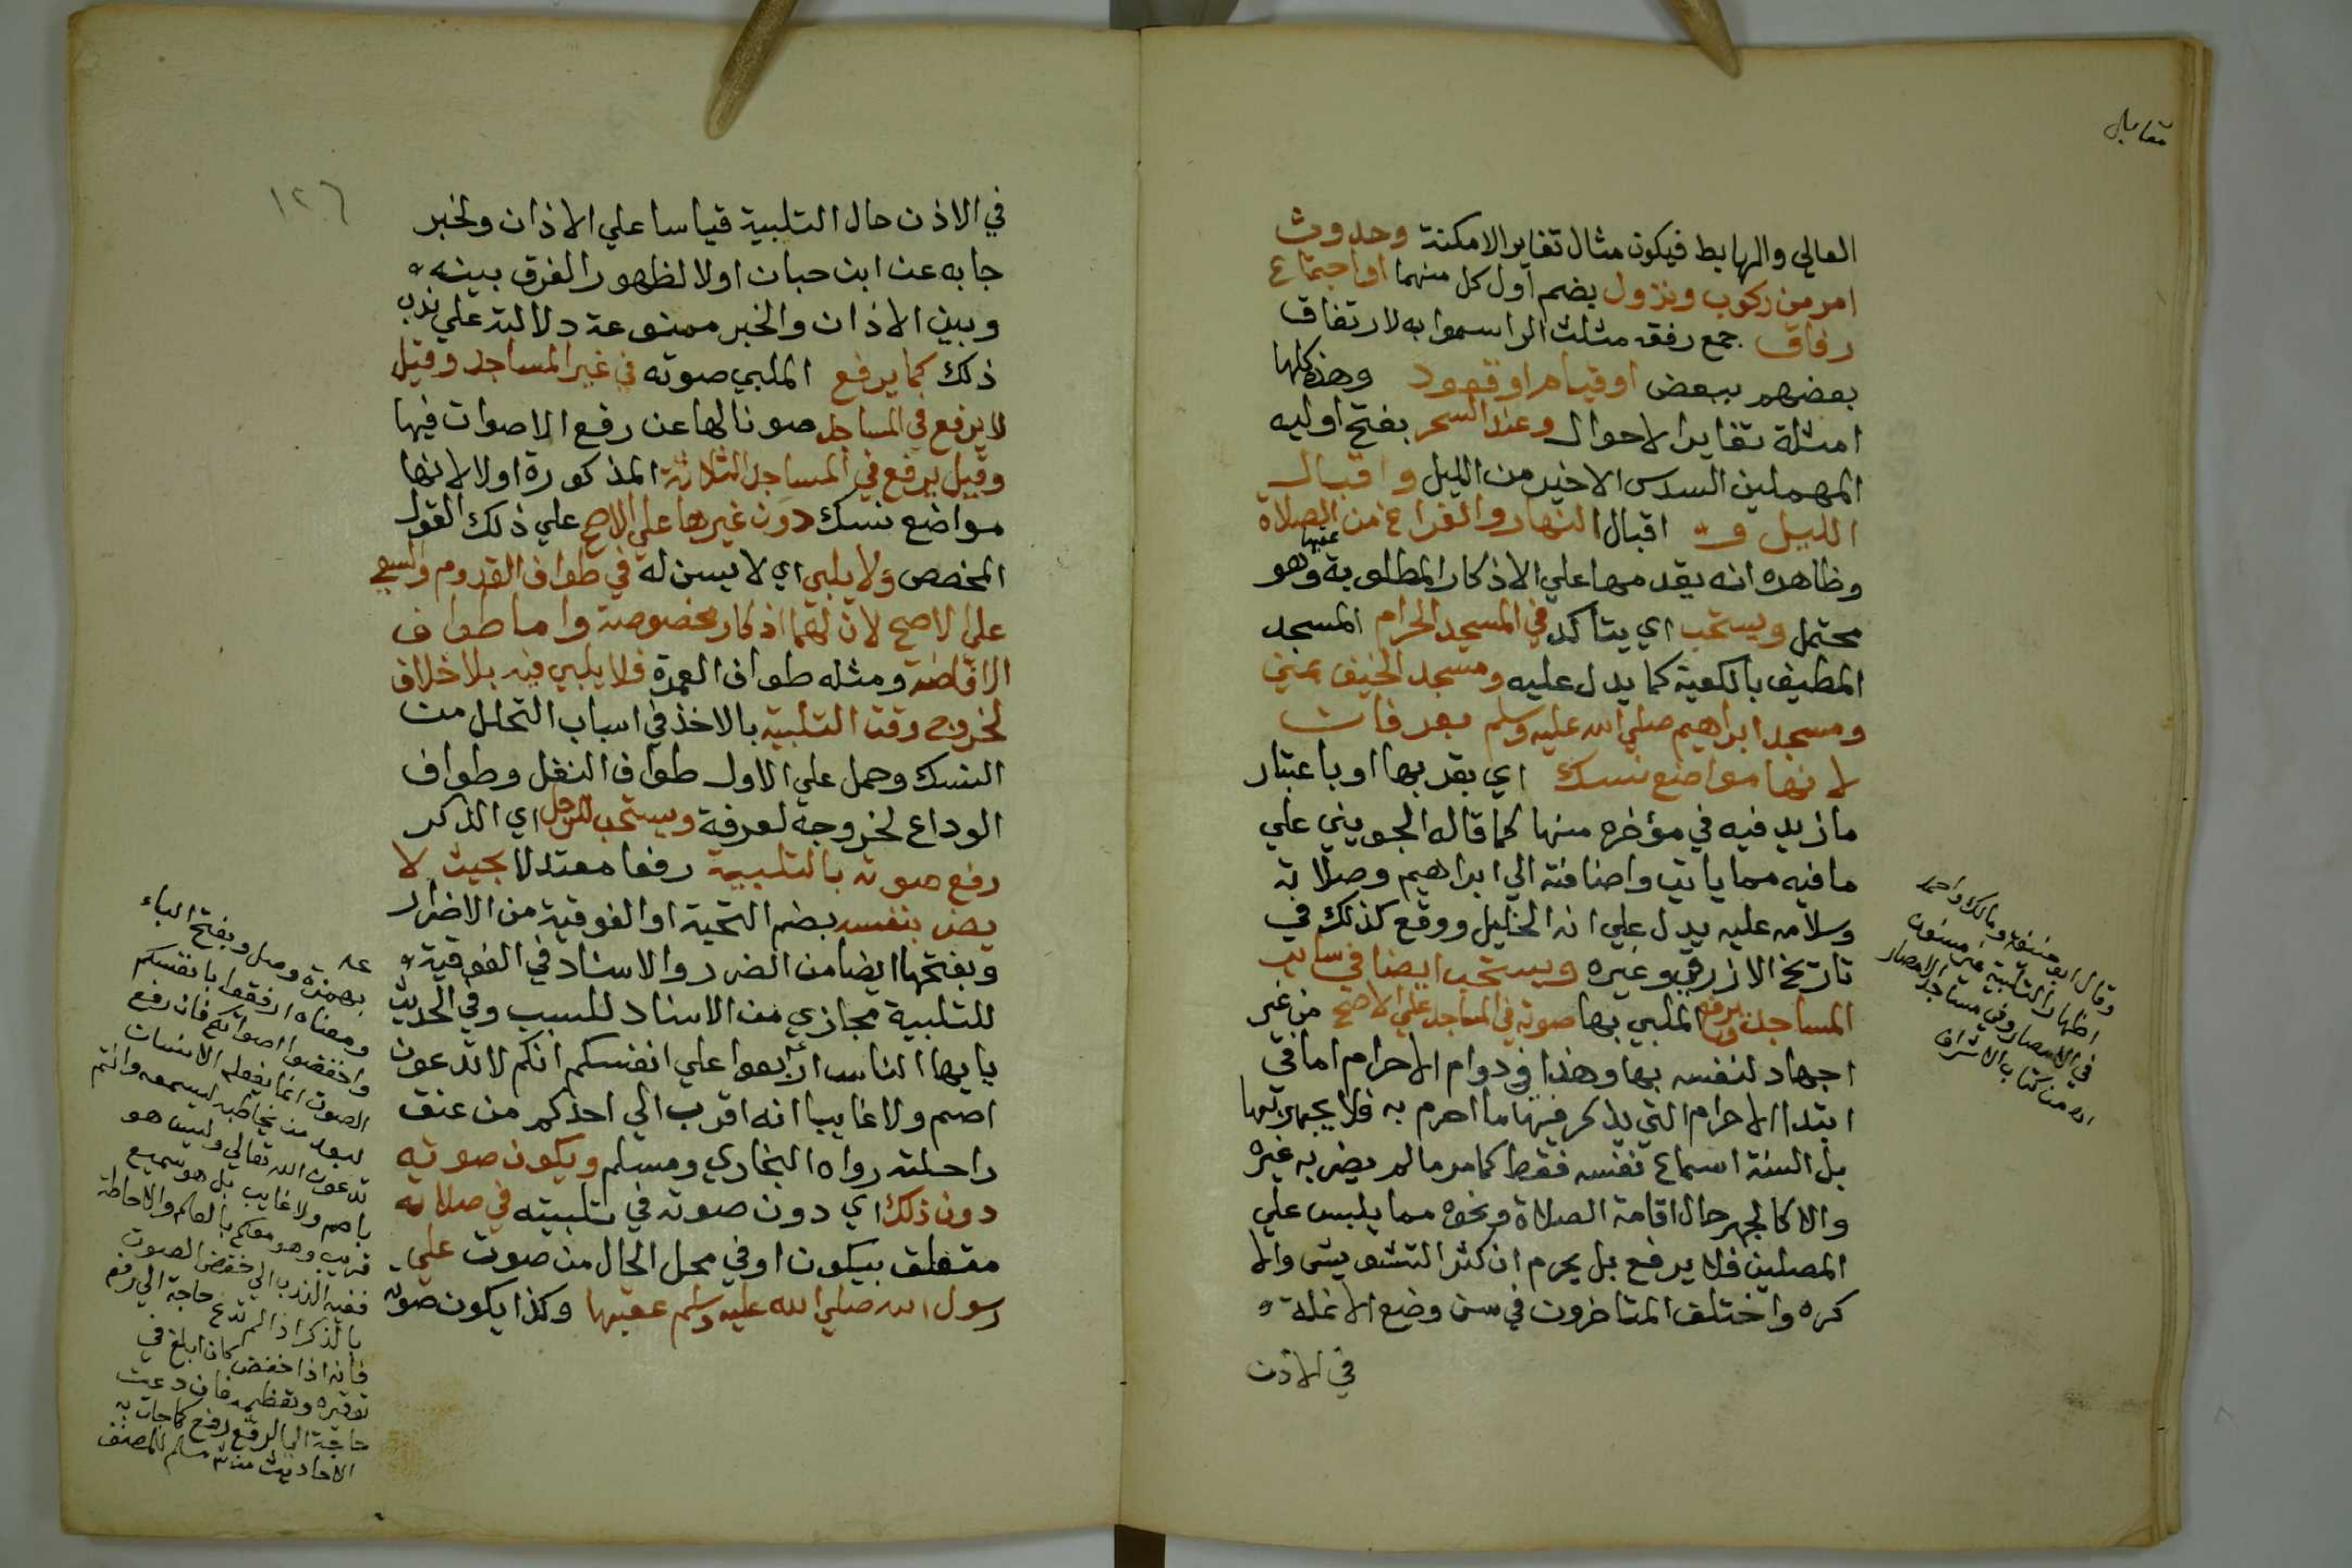 مقابل
العالي والهابط فيكون مثال تغاير الامكنة وحدوث
امر من ركوب ونزول بضم اول كل منهما او اجتماع
رفاق جمع رفقه مثلث الرا سموا به لارتفاق
بعضهم ببعض او قيام او قعود وهذه كلها
امثلة تغاير الاحوال وعند السحر بفتح اوليه
المهملين السدس الاخير من الليل واقبال
الليل و اقبال النهار والفراغ من الصلاة
وظاهره انه يقدمها علي الاذكار المطلوبة عقبها وهو
محتمل ويستحب اي يتاكد في المسجد الحرام المسجد
المطيف بالكعبة كما يدل عليه ومسجد الخيف بمني
ومسجد ابراهيم صلي الله عليه وسلم بعرفات
لانها مواضع نسك اي بقربها او باعتبار
ما زيد فيه في مؤخره منها كما قاله الجويني علي
ما فيه مما ياتي واضافته الي ابراهيم وصلاته
وسلامه عليه يدل علي انه الخليل ووقع كذلك في
تاريخ الازرقي وغيره ويستحب ايضا في ساير
المساجد ويرفع الملبي بها صوته في المساجد علي الاصح من غير
اجهاد لنفسه بها وهذا في دوام الاحرام اما في
ابتدا الاحرام التي يذكر فيها ما احرم به فلا يجهر بها
بل السنة اسماع نفسه فقط كما مر ما لم يضر به غيره
والا كالجهر حال اقامة الصلاة ونحوه مما يلبس علي
المصلين فلا يرفع بل يحرم ان كثر التشويش والا
كره واختلف المتاخرون في سن وضع الانملة
في الاذن
وقال ابو حنيفة ومالك واحمد
اظهار التلبية غير مسنون
في الامصار وفي مساجد الامصار
اه من كتاب الاشراف
١٢٦
في الاذن حال التلبية قياسا علي الاذان ولخبر
جا به عن ابن حبان اولا لظهور الفرق بينه
وبين الاذان والخبر ممنوعة دلالته علي ندب
ذلك كما يرفع الملبي صوته في غير المساجد وقيل
لا يرفع في المساجد صونا لها عن رفع الاصوات فيها
وقيل يرفع في المساجد الثلاثة المذكورة اولا لانها
مواضع نسك دون غيرها علي الاصح علي ذلك القول
المخصص ولا يلبي اي لا يسن له في طواف القدوم والسعي
علي الاصح لان لهما اذكار مخصوصة واما طواف
الافاضة ومثله طواف العمرة فلا يلبي فيه بلا خلاف
لخروج وقت التلبية بالاخذ في اسباب التحلل من
النسك وحمل علي الاول طواف النفل وطواف
الوداع لخروجه لعرفة ويستحب للرجل اي الذكر
رفع صوته بالتلبية رفعا معتدلا بحيث لا
يضر بنفسه بضم التحتية او الفوقية من الاضرار
وبفتحها ايضا من الضرر والاسناد في الفوقية
للتلبية مجازي من الاسناد للسبب وفي الحديث
يا يها الناس اربعوا علي انفسكم انكم لا تدعون
اصم ولا غايبا انه اقرب الي احدكم من عنق
راحلته رواه البخاري ومسلم ويكون صوته
دون ذلك اي دون صوته في تلبيته في صلاته
متعلق بيكون او في محل الحال من صوت علي
رسول الله صلي الله عليه وسلم عقبها وكذا يكون صوته
عـه
بهمزة وصل وبفتح الباء
ومعناه ارفقوا بانفسكم
واخفضوا اصواتكم فان رفع
الصوت انما يفعله الانسان
لبعد من يخاطبه ليسمعه وانتم
تدعون الله تعالي وليس هو
باصم ولا غايب بل هو سميع
قريب وهو معكم بالعلم والاحاطة
ففيه الندب الي خفض الصوت
بالذكر اذا لم تدع حاجة الي رفعه
فانه اذا خفض كان ابلغ في
توقيره وتعظيمه فان دعت
حاجة الي الرفع رفع كما جات به
الاحاديث من شـ مسلم للمصنف